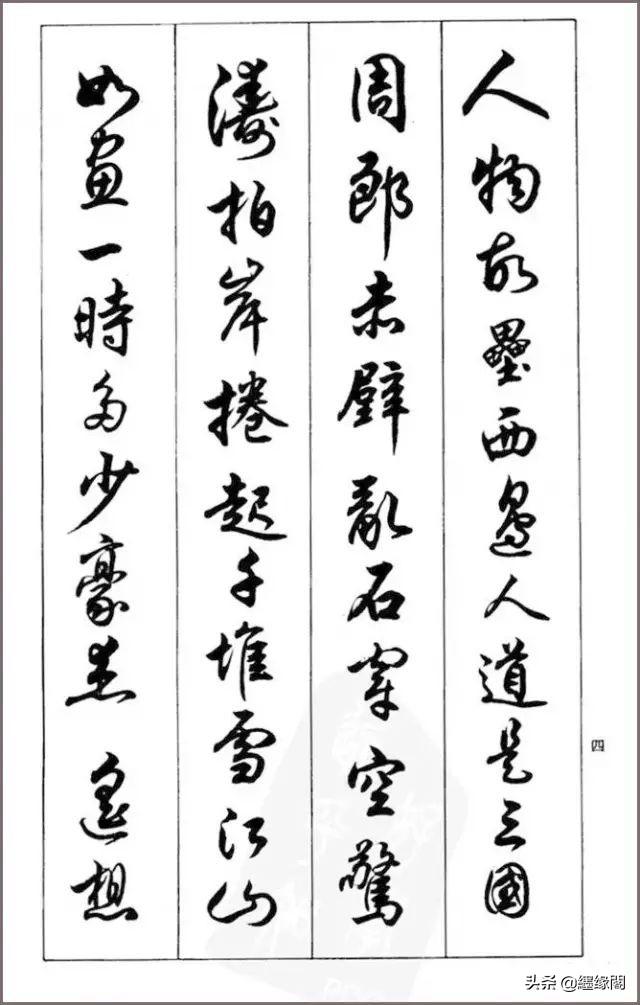 人物故壘西邊人道是三國
周郎赤壁亂石穿空驚
濤拍岸捲起千堆雪江山
如畫一時多少豪杰遙想
四
头条 @缠缘阁